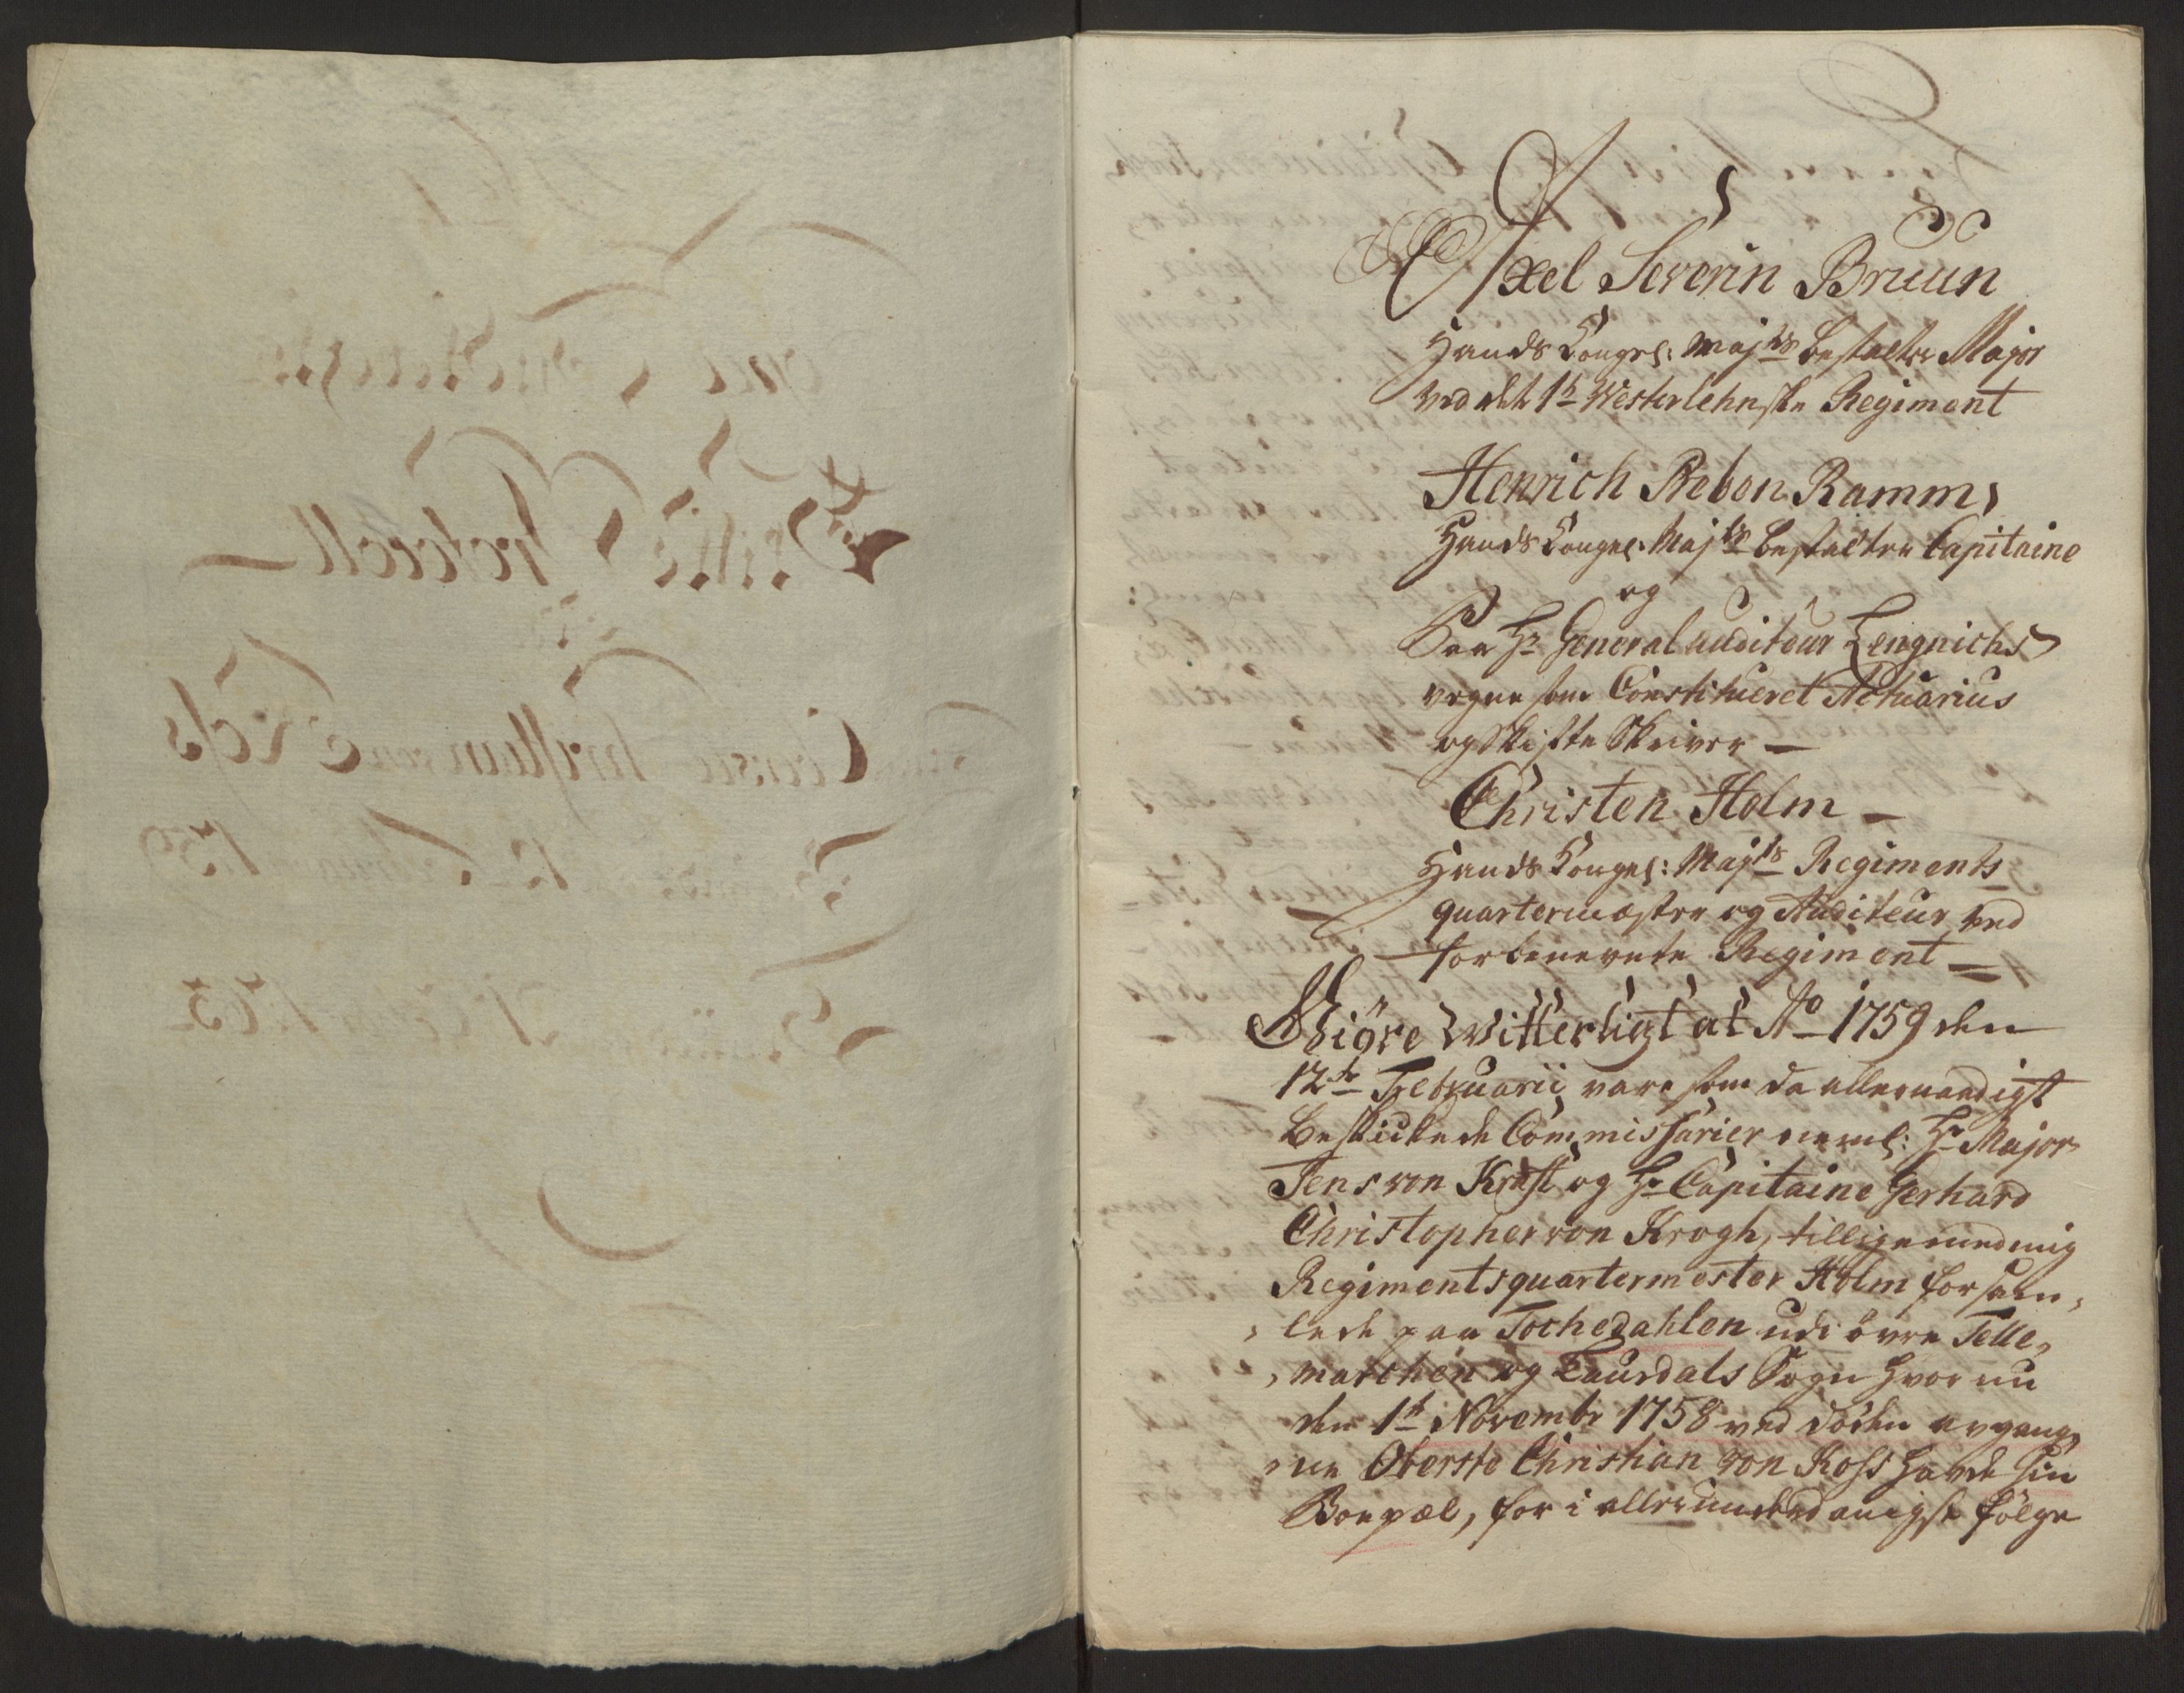 Axel Severin Bruun
Hands Kongel: Maj:ts bestalter Major
ved det 1te Westerlehnske Regiment
Henrich Preben Ramm,
Hands Kongel: Maj:ts bestalter Capitaine
og
Paa Hr General auditeur Lengnichs
vegne som Constitueret Actuarius
og Skifte Skriver —
Christen Holm —
Hands Kongel: Maj:ts Regiments
quartermester og Auditeur ved
forbenevnte Regiment —
Giöre Witterligt at Ao 1759 den
12te Februarii vare som da allernaadigst
Beskickede Commissarier neml: Hr Major
Jens von Krafft og Hr Capitaine Gerhard
Christopher von Krogh, tilligemed mig
Regimentsquartermester Holm forsam,
, lede paa Tochedahlen udi övre Telle,
, marchen og Laurdals Sogn hvor nu
den 1te Novembr 1758 ved döden avgang,
, ne Oberste Christian von Koss havde sin
Boepæl, for i allerunderdanigst fölge